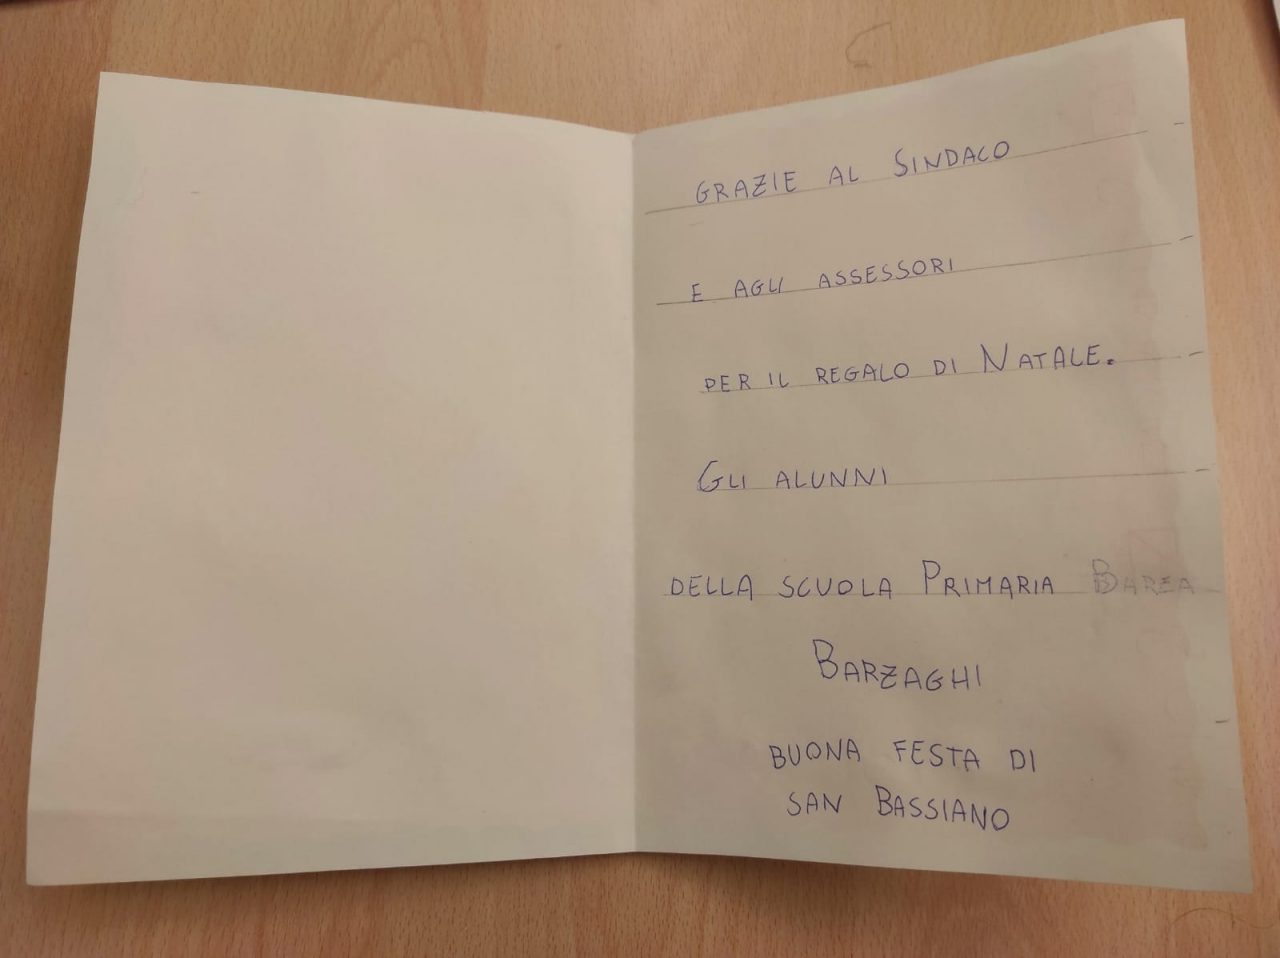 GRAZIE AL SINDACO
E AGLI ASSESSORI
PER IL REGALO DI NATALE.
GLI ALUNNI
DELLA SCUOLA PRIMARIA BAREA
BARZAGHI
BUONA FESTA DI
SAN BASSIANO